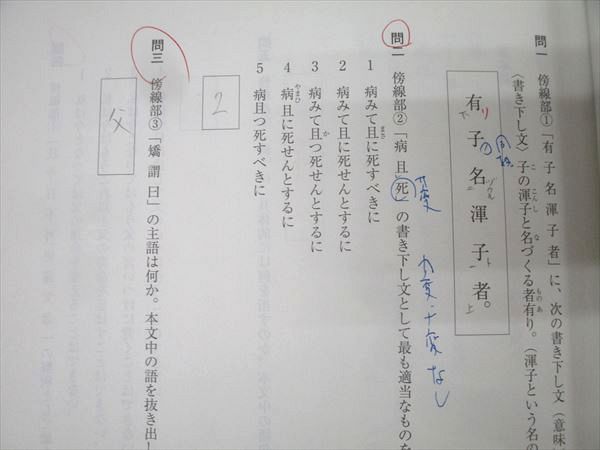 問一 傍線部①「有子名渾子者」に、次の書き下し文(意味
〈書き下し文〉子の渾子と名づくる者有り。(渾子という名の
有子名渾子者。
問二 傍線部②「病且死」の書き下し文として最も適当なものを
1 病みて且に死すべきに
2 病みて且に死せんとするに
3 病みて且つ死せんとするに
4 病且に死せんとするに
5 病且つ死すべきに
2
問三 傍線部③「矯謂曰」の主語は何か。本文中の語を抜き出し
父